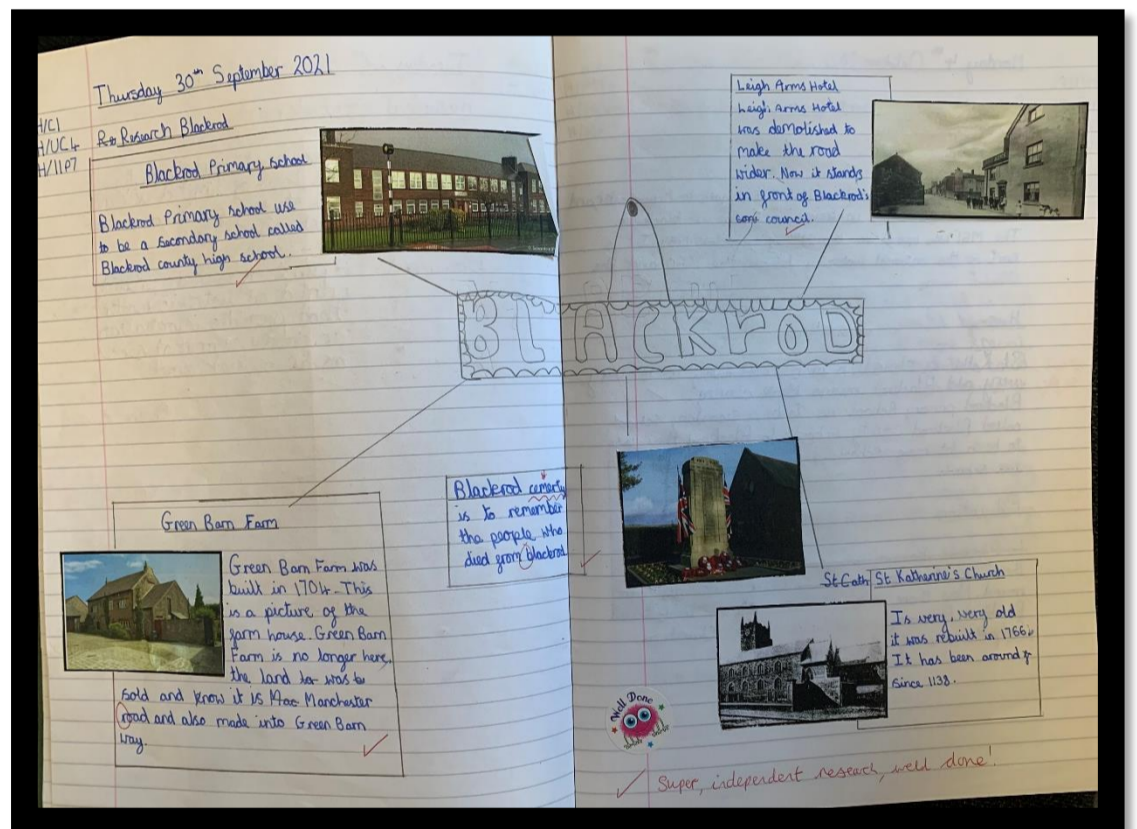 Thursday 30th September 2021
H/C1
H/UC4
H/11P7
Research Blackrod
Blackrod Primary school
Blackrod Primary school use
to be a secondary school called
Blackrod county high school.
Leigh Arms Hotel
Leigh Arms Hotel
was demolished to
make the road
wider. Now it stands
in front of Blackrod's
council.
BLACKroD
Green Barn Farm
Green Barn Farm was
built in 1704. This
is a picture of the
farm house. Green Barn
Farm is no longer here,
the land was
sold and know it is Manchester
road and also made into Green Barn
way.
Blackrod cemerty
is to remember
the people who
died from blackrod
St Cath St Katherine's Church
Is very, very old
it was rebuilt in 1766.
It has been around
since 1138.
Well Done
Super, independent research, well done!